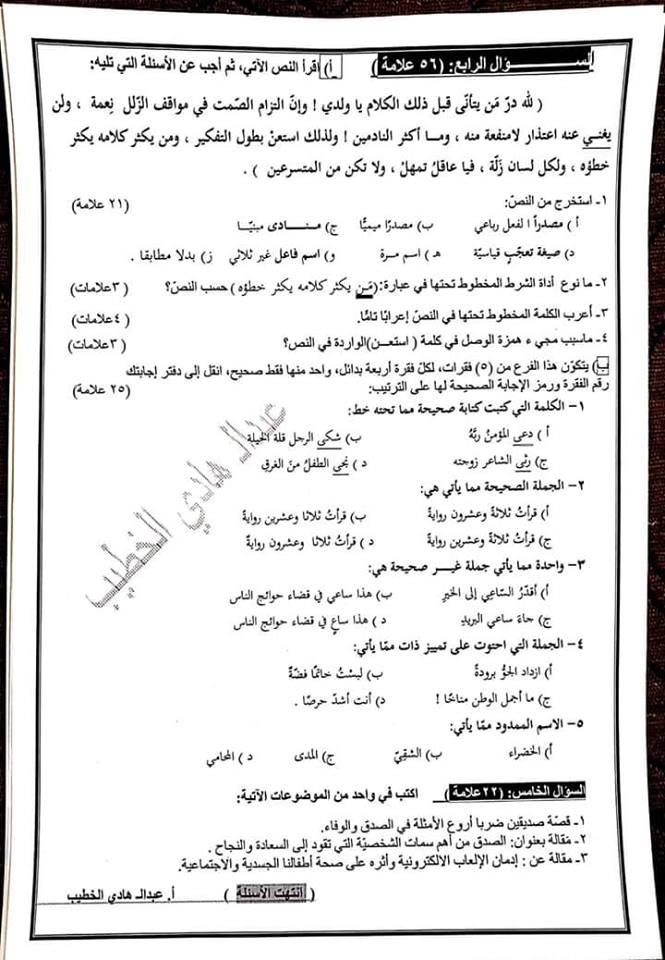 الســـؤال الرابع: (٥٦ علامة) أ) اقرأ النص الآتي، ثم أجب عن الأسئلة التي تليه:
( لله درّ مَن يتأنّى قبل ذلك الكلام يا ولدي ! وإنّ التزام الصّمت في مواقف الزّلل نِعمة ، ولن
يغني عنه اعتذار لامنفعة منه ، ومـا أكثر النادمين ! ولذلك استعنْ بطول التفكير ، ومن يكثر كلامه يكثر
خطؤه ، ولكل لسان زَلّة ، فيا عاقلُ تمهلْ ، ولا تكن من المتسرعين ) .
١- استخرج من النصّ: (٢١ علامة)
أ ) مصدراً لفعل رباعي ب) مصدرًا ميميًّا ج) منـــادى مبنيّا
د) صيغة تعجّبٍ قياسيّة هـ ) اسم مرة و) اسم فاعل غير ثلاثي ز) بدلا مطابقا .
٢- ما نوع أداة الشرط المخطوط تحتها في عبارة: (مَن يكثر كلامه يكثر خطؤه) حسب النصّ؟ (٣علامات)
٣- أعرب الكلمة المخطوط تحتها في النصّ إعرابًا تامًّا. (٤علامات)
٤- ماسبب مجيء همزة الوصل في كلمة ( استعن)الواردة في النص؟ (٣علامات)
ب) يتكوّن هذا الفرع من (٥) فقرات، لكلّ فقرة أربعة بدائل، واحد منها فقط صحيح، انقل إلى دفتر إجابتك
رقم الفقرة ورمز الإجابة الصحيحة لها على الترتيب: (٢٥ علامة)
١- الكلمة التي كتبت كتابة صحيحة مما تحته خط:
أ ) دعى المؤمنُ ربَّهُ ب) شكى الرجل قلة الحيلة
ج) رثى الشاعر زوجته د ) نجى الطفلُ منَ الغرقِ
٢- الجملة الصحيحة مما يأتي هي:
أ) قرأتُ ثلاثةً وعشرون روايةً ب) قرأتُ ثلاثا وعشرين روايةً
ج) قرأتُ ثلاثةً وعشرين روايةً د ) قرأتُ ثلاثا وعشرون روايةً
٣- واحدة مما يأتي جملة غيـــر صحيحة هي:
أ ) أقدّرُ السّاعِي إلى الخيرِ ب) هذا ساعي في قضاء حوائج الناس
ج) جاءَ ساعي البريدِ د) هذا ساعٍ في قضاء حوائج الناس
٤- الجملة التي احتوت على تمييز ذات ممّا يأتي:
أ) ازداد الجوُّ برودةً ب) لبستُ خاتمًا فضّةً
ج) ما أجمل الوطن مناخًا ! د) أنت أشدّ حرصًا .
٥- الاسم الممدود ممّا يأتي:
أ) الخضراء ب) الشقِيّ ج) المدى د ) المحامي
السؤال الخامس: (٢٢علامة) اكتب في واحد من الموضوعات الآتية:
١- قصّة صديقين ضربا أروع الأمثلة في الصدق والوفاء.
٢- مَقالة بعنوان: الصدق من أهم سمات الشخصيّة التي تقود إلى السعادة والنجاح .
٣- مقالة عن : إدمان الإلعاب الالكترونية وأثره على صحة أطفالنا الجسدية والاجتماعية.
( انتهت الأسئلة ) أ. عبدالـ هادي الخطيب
عبدالـ هادي الخطيب